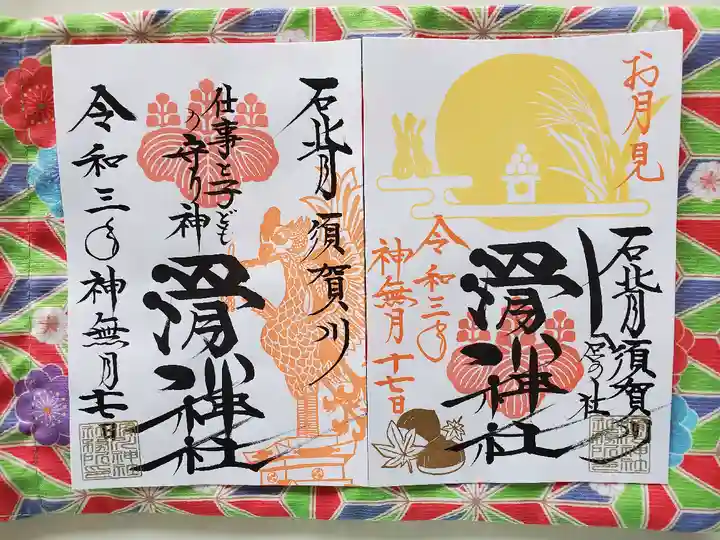 お月見
石背須賀川
の社
滑川神社
令和三年
神無月十七日
石背 須賀川
仕事と子ども
の守り神
滑川神社
令和三年 神無月十七日